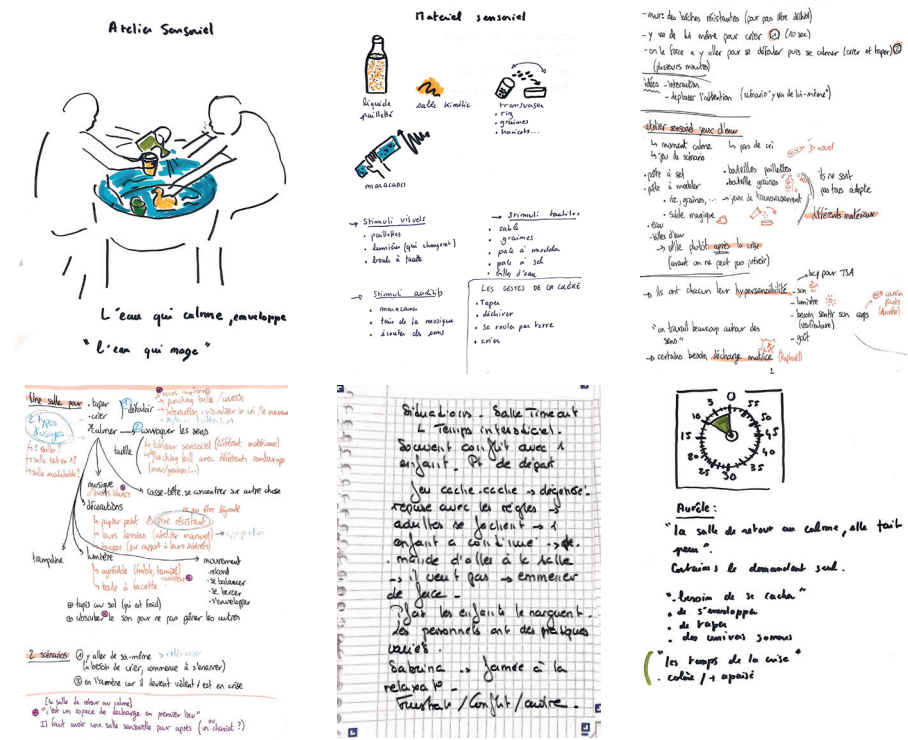 Atelier Sensoriel
L'eau qui calme, enveloppe
"l'eau qui nage"
Materiel sensoriel
liquide
pailleté
sable kinétic
transvaser
• riz
• graines
• haricots...
maracasses
→ Stimuli visuels
• paillettes
• lumière (qui changent)
• boule à facette
→ Stimuli tactiles
• sable
• graines
• pate à modeler
• pate à sel
• billes d'eau
→ Stimuli auditifs
• maracasses
• faire de la musique
• écouter des sons
LES GESTES DE LA COLÈRE
• Taper
• déchirer
• se rouler par terre
• crier
- murs: des bâches résistantes (pour pas être détruit)
- y va de lui même pour crier ① (10 sec)
- on le force a y aller pour se défouler puis se calmer (crier et taper) ②
(plusieurs minutes)
idées - interaction
- déplacer l'attention (scénario "y va de lui-même")
atelier sensoriel jeux d'eau
↳ moment calme ↳ pas de cri
↳ jeu de scénario
• pâte à sel
• pâte à modeler
• bouteilles paillettes
• bouteille graines
ils ne sont
pas tous adapte
• riz, graines, ... → jeux de transvasement
• sable magique
différents matériaux
• eau
• billes d'eau
→ utile plutôt après la crise
(avant on ne peut pas prévoir)
→ ils ont chacun leur hypersensibilité
→ bcp pour TSA
- son
- lumière
- besoin sentir son corps
(vestibulaire)
- goût
"on travail beaucoup autour des
sens"
→ certains besoin décharge motrice (Raphaël)
2
Une salle pour
• taper
• crier
① défouloir
punching balls / coussin
2 types
d'usages
se calmer → ② convoquer les sens
↳ 2 salles?
↳ salle tout en 1?
↳ salle modulable?
tactile
↳ tableau sensoriel (différents matériaux)
↳ punching ball avec différents rembourrages
musique
casse-tête, se concentrer sur autre chose
décorations
↳ papier peint ⚠ être résistant
↳ leurs dessins (atelier manuel)
trampoline
lumière
↳ agréable (faible, tamisé)
↳ boule à facette
mouvement
- se balancer
- se bercer
- s'envelopper
⊕ tapis au sol (qui est froid)
⊕ absorber le son pour ne pas gêner les autres
2 scénarios ① y aller de soi-même
(a besoin de crier, commence à s'énerver)
② on l'amène car il devient violent / est en crise
(la salle de retour au calme)
"c'est un espace de décharge en premier lieu"
Il faut avoir une salle sensorielle pour après (ou un chariot?)
Situations - Salle Time out
↳ Temps interstitiel.
Souvent conflit avec 1
enfant. Pt de départ
Jeu cache-cache → dégénère.
refuse avec les règles →
adultes se fachent → 1
enfant a continué →
mande d'aller à la salle
→ il veut pas → emmener
de force -
les enfants le narguent
Les personnels ont des pratiques
variés.
Sabrina → formée à la
relaxat° -
Frustrat° / Conflit / autre.
0
55
50
45
40
35
30
25
20
15
10
5
Aurèle:
"la salle de retour au calme, elle fait
peur".
Certains le demandent seul.
"- besoin de se cacher"
• de s'envelopper
• de taper
• des univers sonores
"les temps de la crise"
- colère / + apaisé